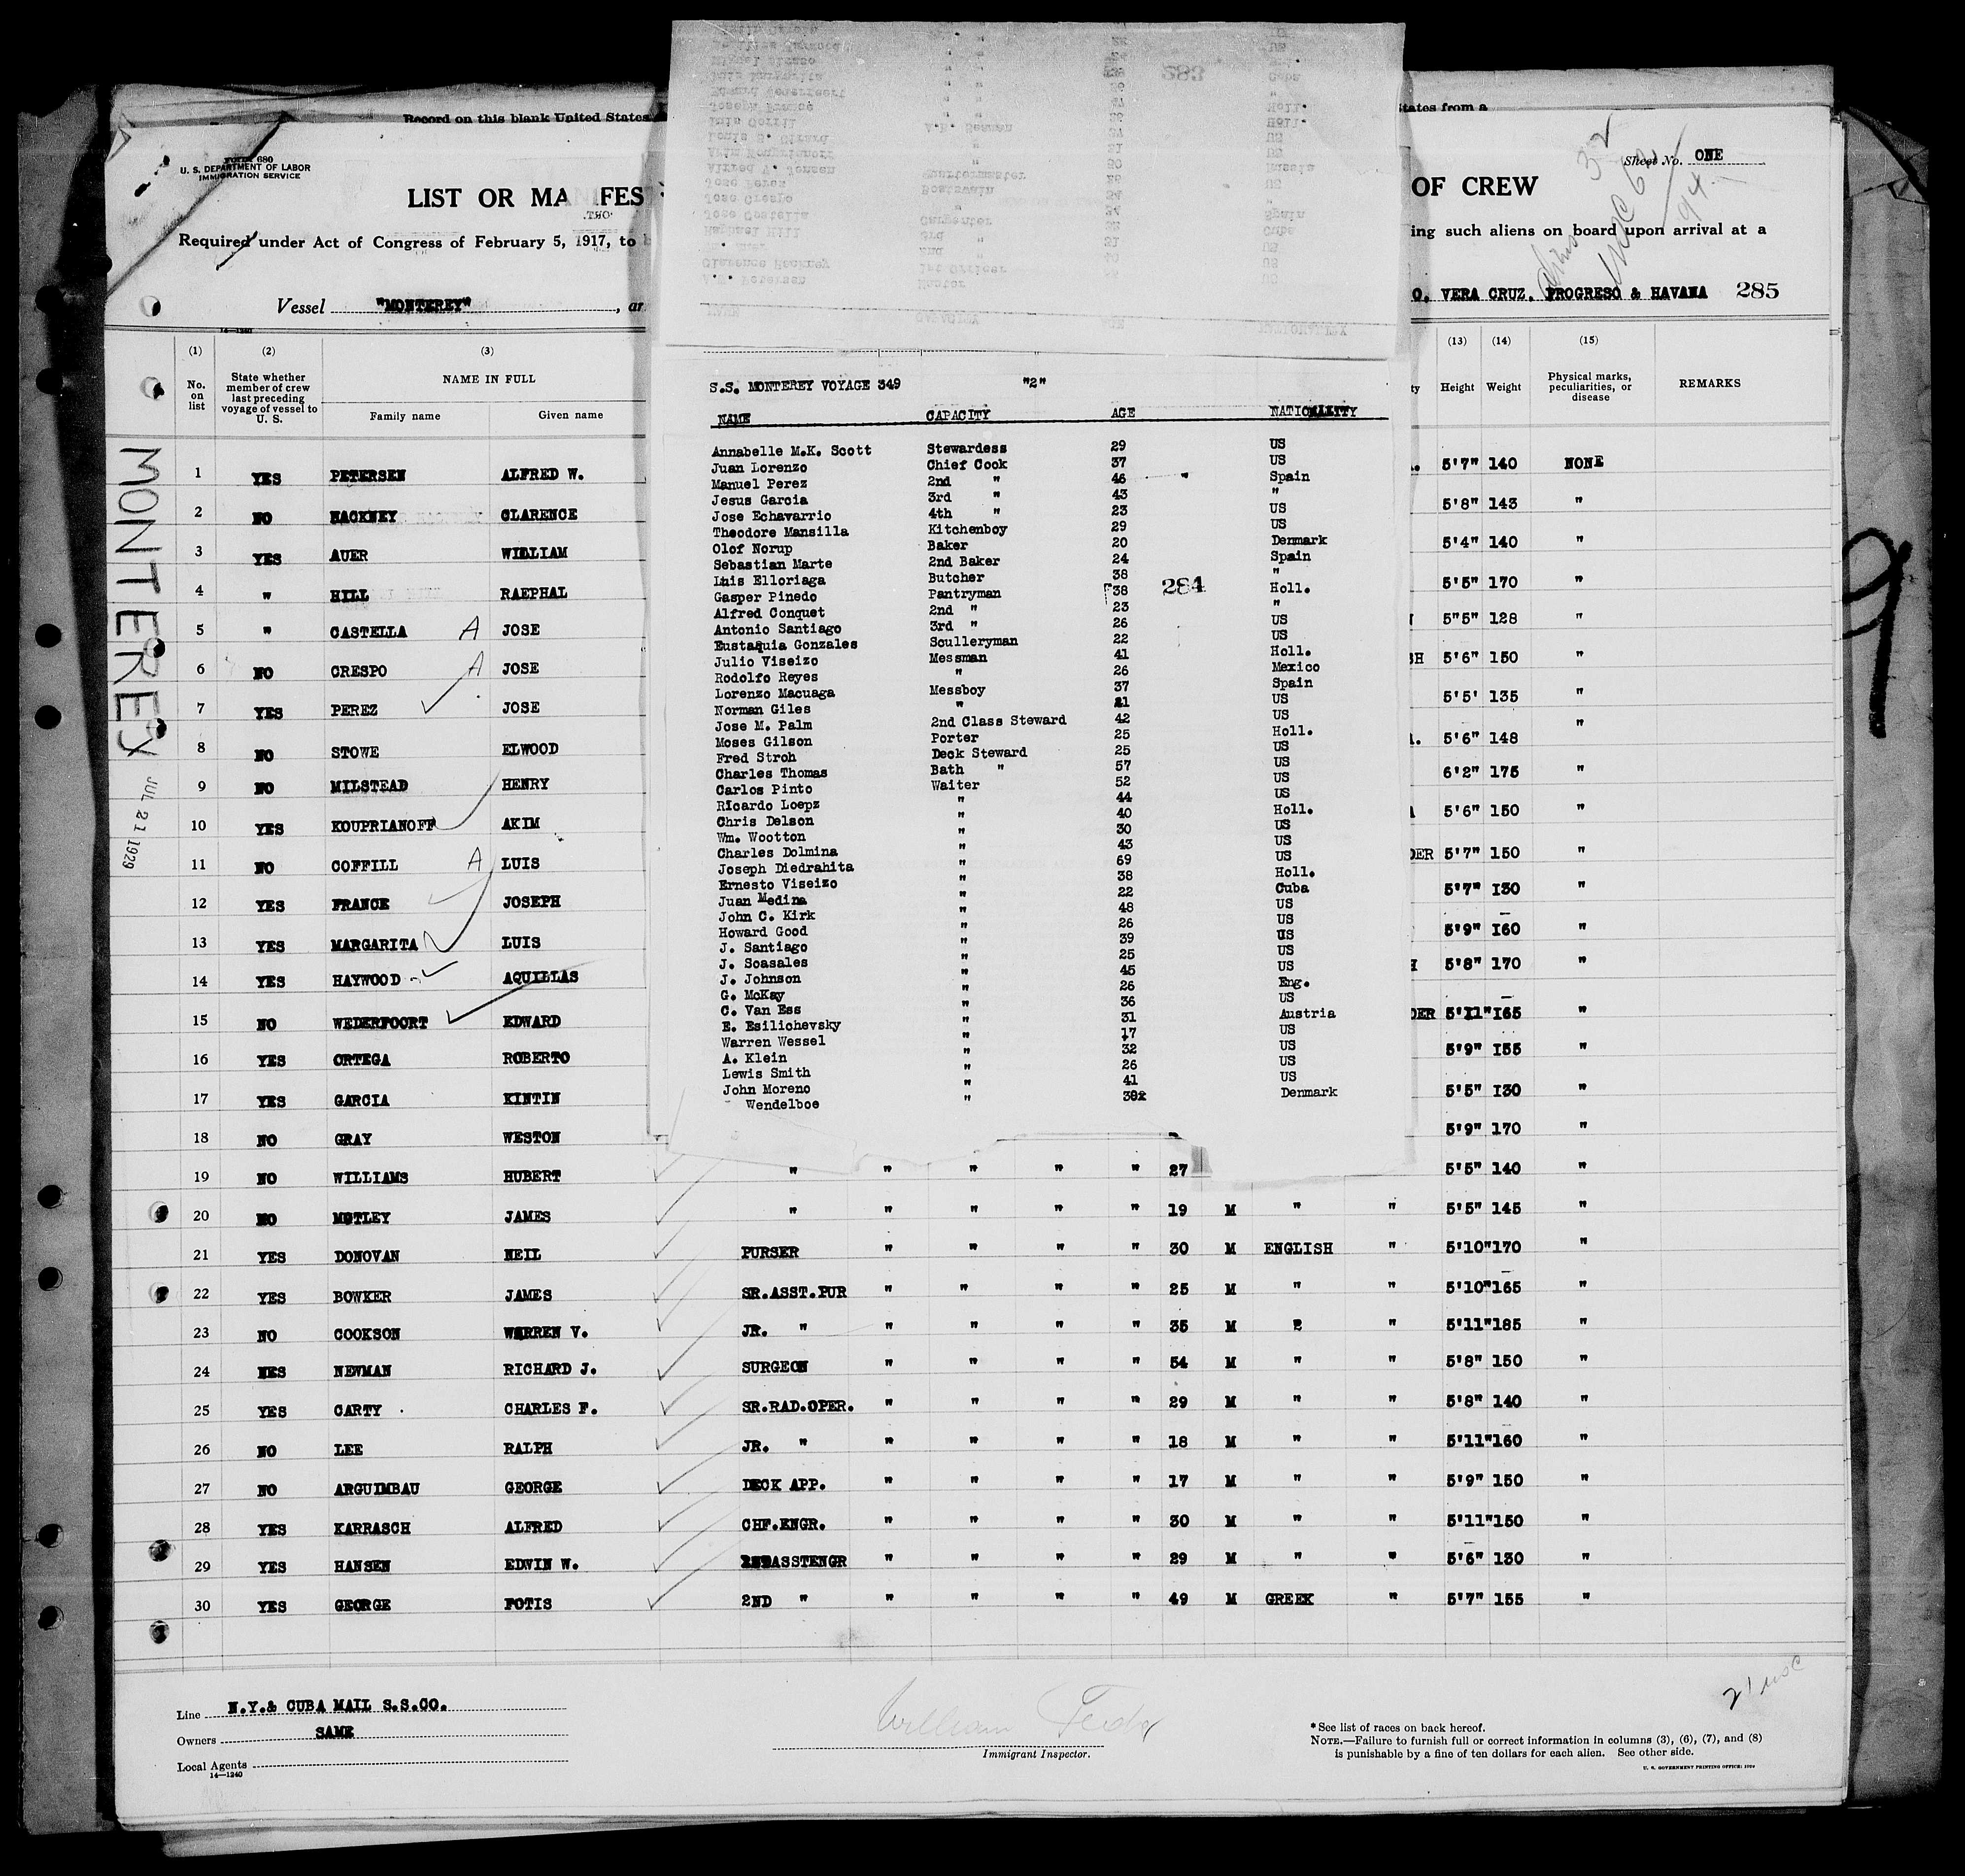 Record on this blank United States
tates from a
FORM 680
U. S. DEPARTMENT OF LABOR
IMMIGRATION SERVICE
Sheet No. ONE
LIST OR MA FES
OF CREW
Required under Act of Congress of February 5, 1917, to
ing such aliens on board upon arrival at a
Vessel "MONTEREY", ar
O, VERA CRUZ, PROGRESO & HAVANA 285
14—1240
(1) (2) (3) (13) (14) (15)
No. on list
State whether member of crew last preceding voyage of vessel to U. S.
NAME IN FULL
Family name Given name
Height Weight
Physical marks, peculiarities, or disease
REMARKS
MONTEREY JUL 21 1929
1 YES PETERSEN ALFRED W. 5'7" 140 NONE
2 NO HACKNEY CLARENCE 5'8" 143 "
3 YES AUER WILLIAM 5'4" 140 "
4 " HILL RAEPHAL 5'5" 170 "
5 " CASTELLA A JOSE 5"5" 128 "
6 NO CRESPO A JOSE 5'6" 150 "
7 YES PEREZ JOSE 5'5' 135 "
8 NO STOWE ELWOOD 5'6" 148 "
9 NO MILSTEAD HENRY 6'2" 175 "
10 YES KOUPRIANOFF AKIM 5'6" 150 "
11 NO COFFILL A LUIS DER 5'7" 150 "
12 YES FRANCE JOSEPH 5'7" I30 "
13 YES MARGARITA LUIS 5'9" I60 "
14 YES HAYWOOD AQUILLAS 5'8" 170 "
15 NO WEDERFOORT EDWARD DER 5'11" I65 "
16 YES ORTEGA ROBERTO 5'9" I55 "
17 YES GARCIA KINTIN 5'5" I30 "
18 NO GRAY WESTON 5'9" 170 "
19 NO WILLIAMS HUBERT " " " " " 27 5'5" 140 "
20 NO MOTLEY JAMES " " " " " 19 M " " 5'5" 145 "
21 YES DONOVAN NEIL PURSER " " " " 30 M ENGLISH " 5'10" 170 "
22 YES BOWKER JAMES SR.ASST.PUR " " " " 25 M " " 5'10" 165 "
23 NO COOKSON WARREN V. JR. " " " " " 35 M 2 " 5'11" 185 "
24 YES NEWMAN RICHARD J. SURGEON " " " " 54 M " " 5'8" 150 "
25 YES CARTY CHARLES F. SR.RAD.OPER. " " " " 29 M " " 5'8" 140 "
26 NO LEE RALPH JR. " " " " " 18 M " " 5'11" 160 "
27 NO ARGUIMBAU GEORGE DECK APP. " " " " 17 M " " 5'9" 150 "
28 YES KARRASCH ALFRED CHF.ENGR. " " " " 30 M " " 5'11" 150 "
29 YES HANSEN EDWIN W. ASSTENGR " " " " 29 M " " 5'6" 130 "
30 YES GEORGE FOTIS 2ND " " " " " 49 M GREEK " 5'7" 155 "
S.S. MONTEREY VOYAGE 349 "2"
NAME CAPACITY AGE NATIONALITY
Annabelle M.K. Scott Stewardess 29 US
Juan Lorenzo Chief Cook 37 US
Manuel Perez 2nd " 46 Spain
Jesus Garcia 3rd " 43 "
Jose Echavarrio 4th " 23 US
Theodore Mansilla Kitchenboy 29 US
Olof Norup Baker 20 Denmark
Sebastian Marte 2nd Baker 24 Spain
Luis Elloriaga Butcher 38 "
Gasper Pinedo Pantryman 38 Holl.
284
Alfred Conquet 2nd " 23 "
Antonio Santiago 3rd " 26 US
Eustaquia Gonzales Sculleryman 22 US
Julio Viseizo Messman 41 Holl.
Rodolfo Reyes " 26 Mexico
Lorenzo Macuaga Messboy 37 Spain
Norman Giles " 21 US
Jose M. Palm 2nd Class Steward 42 US
Moses Gilson Porter 25 Holl.
Fred Stroh Deck Steward 25 US
Charles Thomas Bath " 57 US
Carlos Pinto Waiter 52 US
Ricardo Loepz " 44 US
Chris Delson " 40 Holl.
Wm. Wootton " 30 US
Charles Dolmina " 43 US
Joseph Diedrahita " 69 US
Ernesto Viseizo " 38 Holl.
Juan Medina " 22 Cuba
John C. Kirk " 48 US
Howard Good " 26 US
J. Santiago " 39 US
J. Soasales " 25 US
J. Johnson " 45 US
G. McKay " 26 Eng.
C. Van Ess " 36 US
E. Esilichevsky " 31 Austria
Warren Wessel " 17 US
A. Klein " 32 US
Lewis Smith " 26 US
John Moreno " 41 US
Wendelboe " 302 Denmark
Line N.Y.& CUBA MAIL S.S.CO.
Owners SAME
Local Agents
14—1240
William
Immigrant Inspector.
* See list of races on back hereof.
NOTE.—Failure to furnish full or correct information in columns (3), (6), (7), and (8)
is punishable by a fine of ten dollars for each alien. See other side.
U. S. GOVERNMENT PRINTING OFFICE: